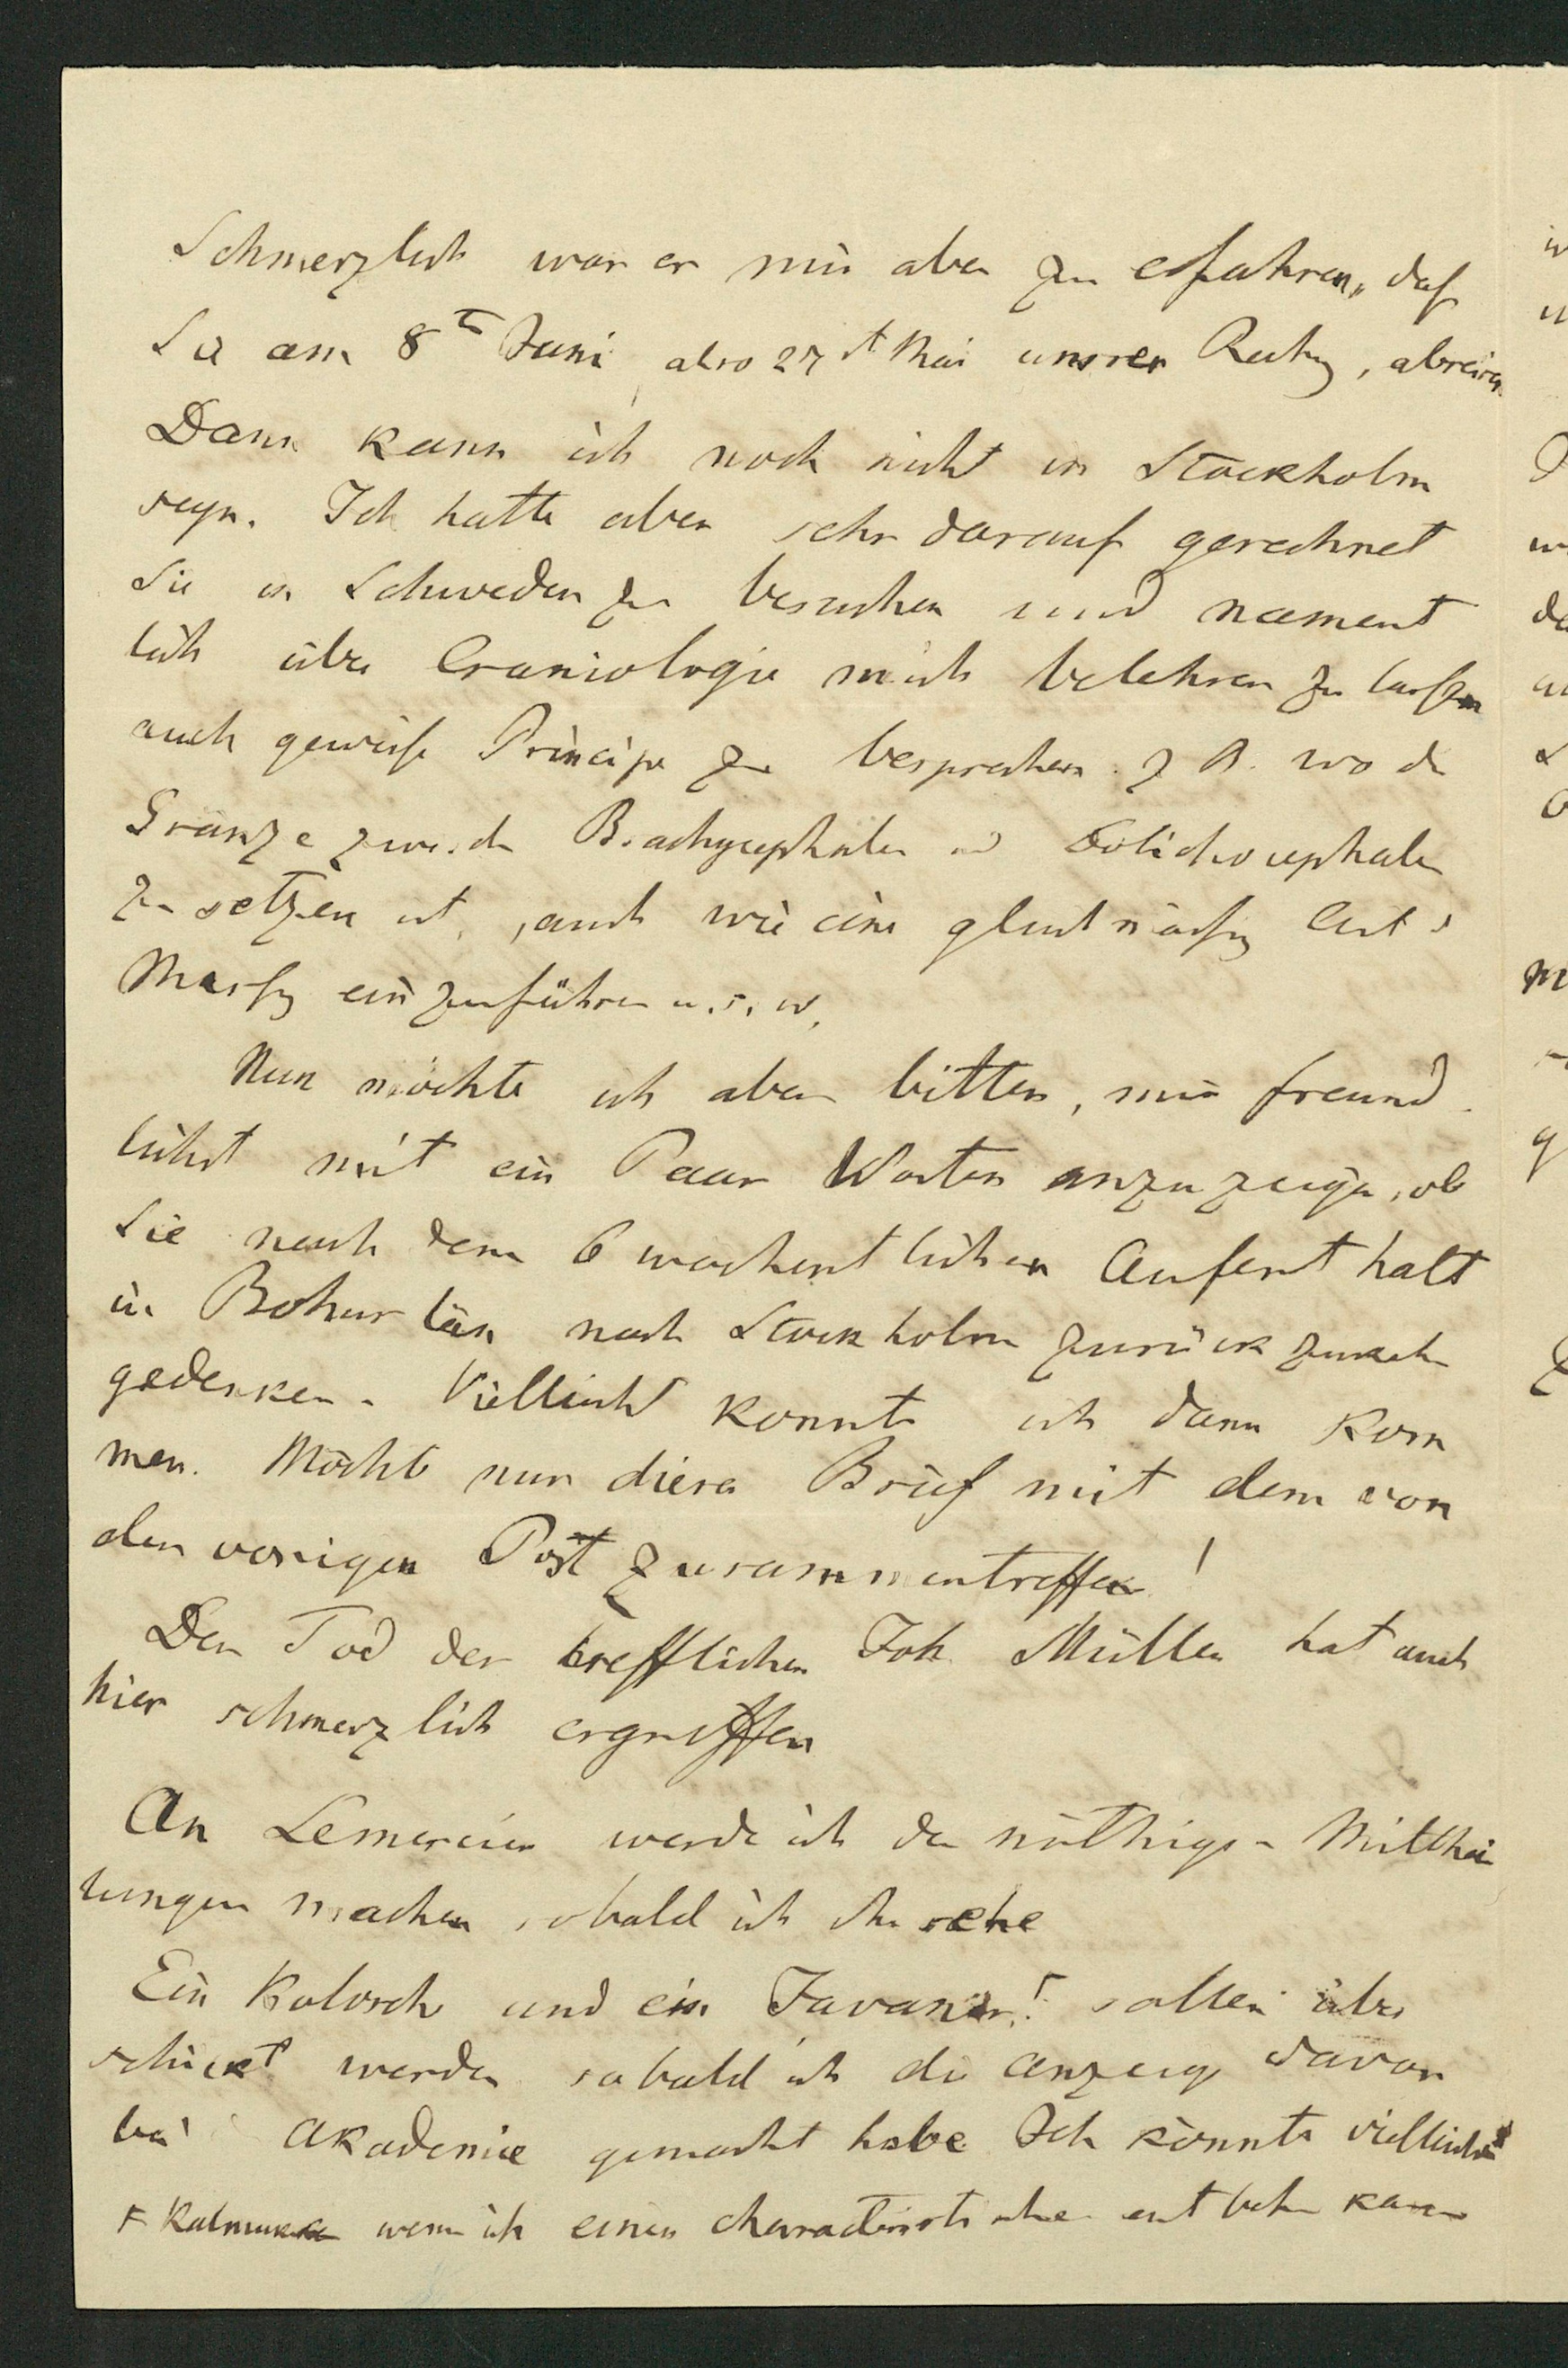 Schmerzlich war es mir aber zu erfahren, daß
Sie am 8ten Juni, also 27st Mai unsrer Rechng, abreisen.
Dann kann ich noch nicht in Stockholm
seyn. Ich hatte aber sehr darauf gerechnet
Sie in Schweden zu besuchen und nament
lich über Craniologie mich belehren zu laßen
auch gewisse Principe zu besprechen z. B. wo die
Gränze zwischen Brachycephalen und Dolichocephalen
zu setzen ist, auch wie eine gleichmäßig
Messg einzuführen u. s. w.
Nun möchte ich aber bitten, mir freund
lichst mit ein Paar Worten anzuzeigen, ob
Sie nach dem 6 wochentlichen Aufenthalt
in Bohuslän nach Stockholm zurückzukehren
gedenken. Vielleicht konnte ich dann kom
men. Möchte nur dieser Brief mit dem von
der vorigen Post zusammentreffen!
Der Tod des trefflichen Joh. Müller hat auch
hier schmerzlich ergriffen
An Lemercier werde ich die nöthigen Mitthei
lungen machen sobald ich ihn sehe
Ein Kolosche und ein Javaner! sollen über
schickt werden sobald ich die Anzeige davon
bei Akademie gemacht habe Ich könnte vielleicht
Kalmuken wenn ich einen characteristischen entbehren kann